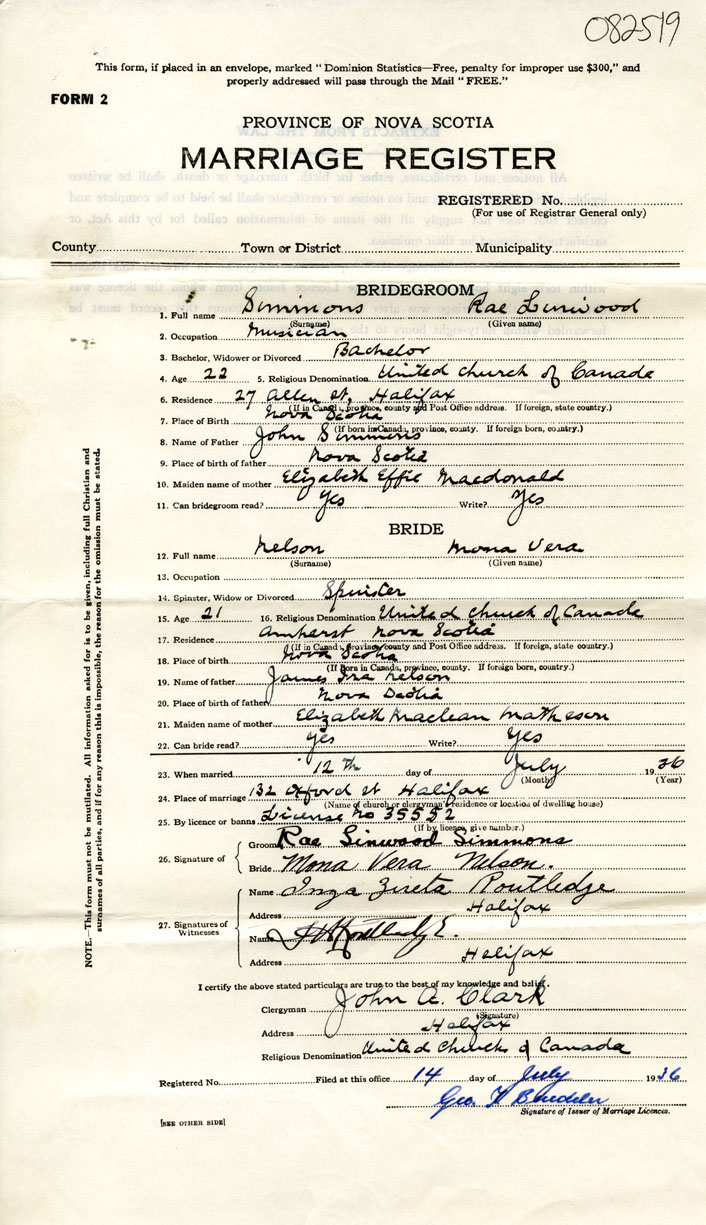 082519
This form, if placed in an envelope, marked "Dominion Statistics—Free, penalty for improper use $300," and
properly addressed will pass through the Mail "FREE."
FORM 2
PROVINCE OF NOVA SCOTIA
MARRIAGE REGISTER
REGISTERED No.
(For use of Registrar General only)
County Town or District Municipality
BRIDEGROOM
1. Full name Simmons Rae Linwood
(Surname) (Given name)
2. Occupation Musician
3. Bachelor, Widower or Divorced Bachelor
4. Age 22 5. Religious Denomination United Church of Canada
6. Residence 27 Allen st, Halifax
(If in Canada, province, county and Post Office address. If foreign, state country.)
7. Place of Birth Nova Scotia
(If born in Canada, province, county. If foreign born, country.)
8. Name of Father John Simmons
9. Place of birth of father Nova Scotia
10. Maiden name of mother Elizabeth Effie Macdonald
11. Can bridegroom read? Yes Write? Yes
BRIDE
12. Full name Nelson Mona Vera
(Surname) (Given name)
13. Occupation
14. Spinster, Widow or Divorced Spinster
15. Age 21 16. Religious Denomination United Church of Canada
17. Residence Amherst Nova Scotia
(If in Canada, province, county and Post Office address. If foreign, state country.)
18. Place of birth Nova Scotia
(If born in Canada, province, county. If foreign born, country.)
19. Name of father James Ira Nelson
20. Place of birth of father Nova Scotia
21. Maiden name of mother Elizabeth Maclean Matheson
22. Can bride read? Yes Write? Yes
23. When married 12th day of July 1936
(Month) (Year)
24. Place of marriage 132 Oxford st Halifax
(Name of church or clergyman's residence or location of dwelling house)
25. By licence or banns License no 35552
(If by licence, give number.)
26. Signature of
Groom Rae Linwood Simmons
Bride Mona Vera Nelson.
27. Signatures of Witnesses
Name Inga Routledge
Address Halifax
Name Routledge
Address Halifax
I certify the above stated particulars are true to the best of my knowledge and belief.
Clergyman John A. Clark
(Signature)
Address Halifax
Religious Denomination United Church of Canada
Registered No. Filed at this office 14 day of July 1936
Geo.
Signature of Issuer of Marriage Licences.
[SEE OTHER SIDE]
NOTE.—This form must not be mutilated. All information asked for is to be given, including full Christian and
surnames of all parties, and if for any reason this is impossible, the reason for the omission must be stated.